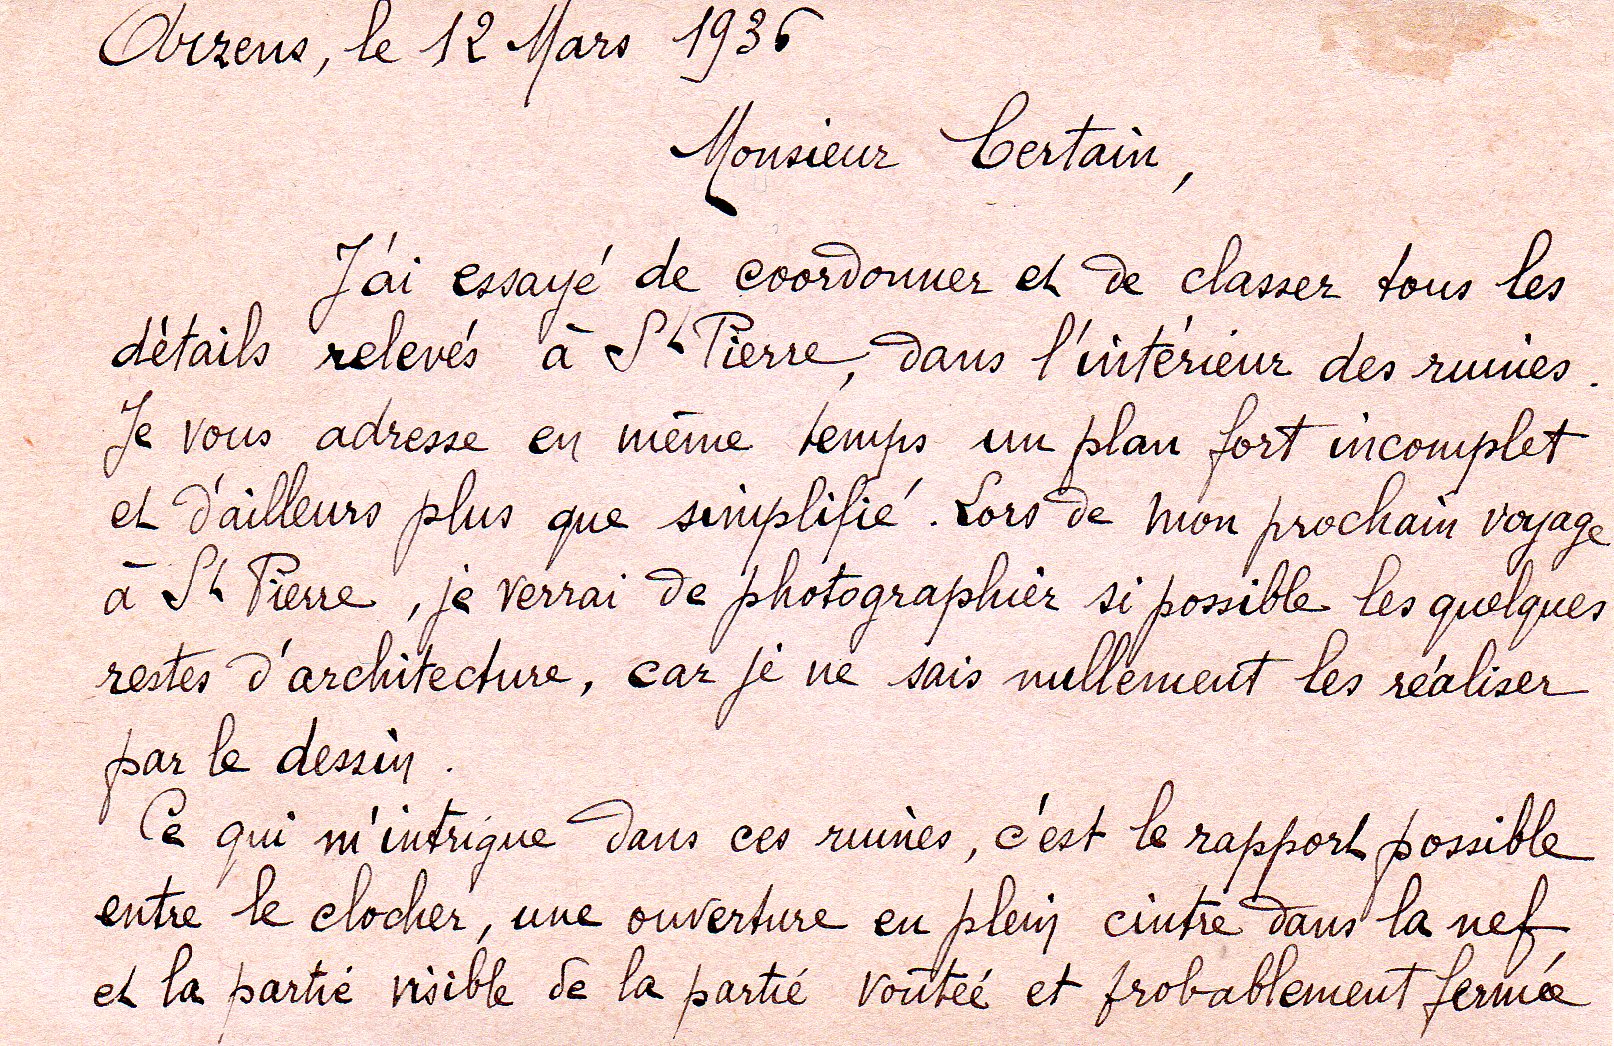 Arzens, le 12 Mars 1936
Monsieur Certain,
J'ai essayé de coordonner et de classer tous les
détails relevés à St Pierre, dans l'intérieur des ruines.
Je vous adresse en même temps un plan fort incomplet
et d'ailleurs plus que simplifié. Lors de mon prochain voyage
à St Pierre, je verrai de photographier si possible les quelques
restes d'architecture, car je ne sais nullement les réaliser
par le dessin.
Ce qui m'intrigue dans ces ruines, c'est le rapport possible
entre le clocher, une ouverture en plein cintre dans la nef
et la partie visible de la partie voûtée et probablement fermée